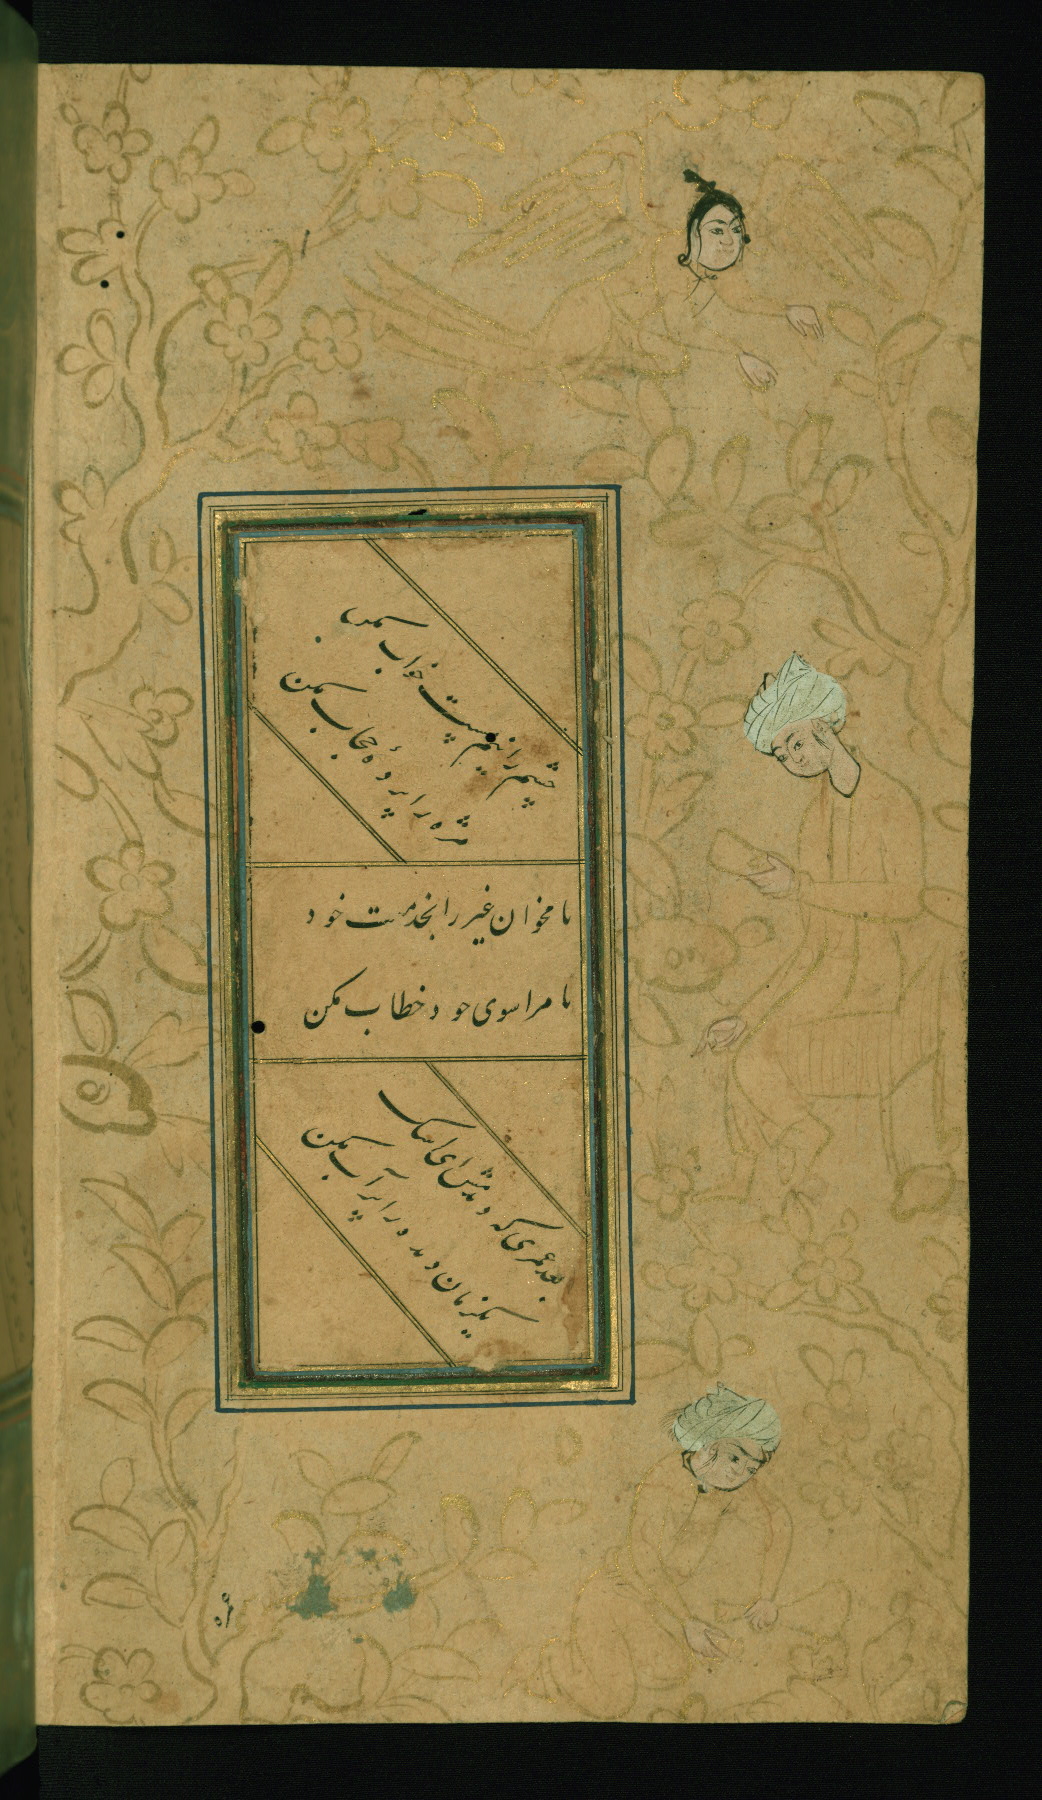 چشم را نیم مست خواب مکن
مژه را پردهٔ حجاب مکن
یا مخوان غیر را بخدمت خود
یا مرا سوی خود خطاب مکن
بعد عمری که دیدمش ای اشک
یکزمان دیده را پر آب مکن